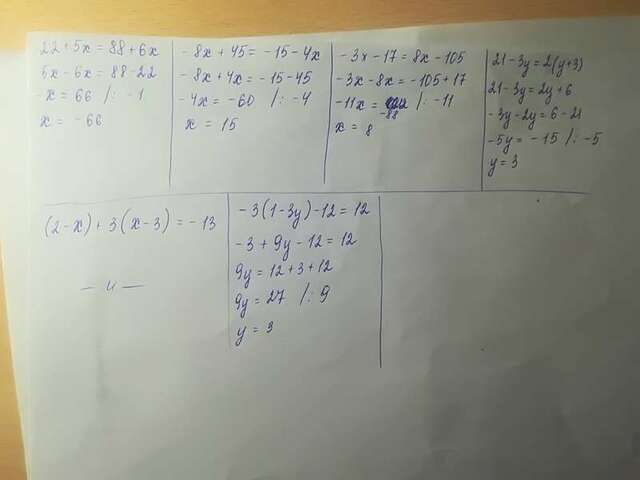 22+5x=88+6x
5x-6x=88-22
-x=66 /:-1
x=-66
-8x+45=-15-4x
-8x+4x=-15-45
-4x=-60 /:-4
x=15
-3x-17=8x-105
-3x-8x=-105+17
-11x= /:-11
-88
x=8
21-3y=2(y+3)
21-3y=2y+6
-3y-2y=6-21
-5y=-15 /:-5
y=3
(2-x)+3(x-3)=-13
-3(1-3y)-12=12
-3+9y-12=12
9y=12+3+12
9y=27 /:9
y=3